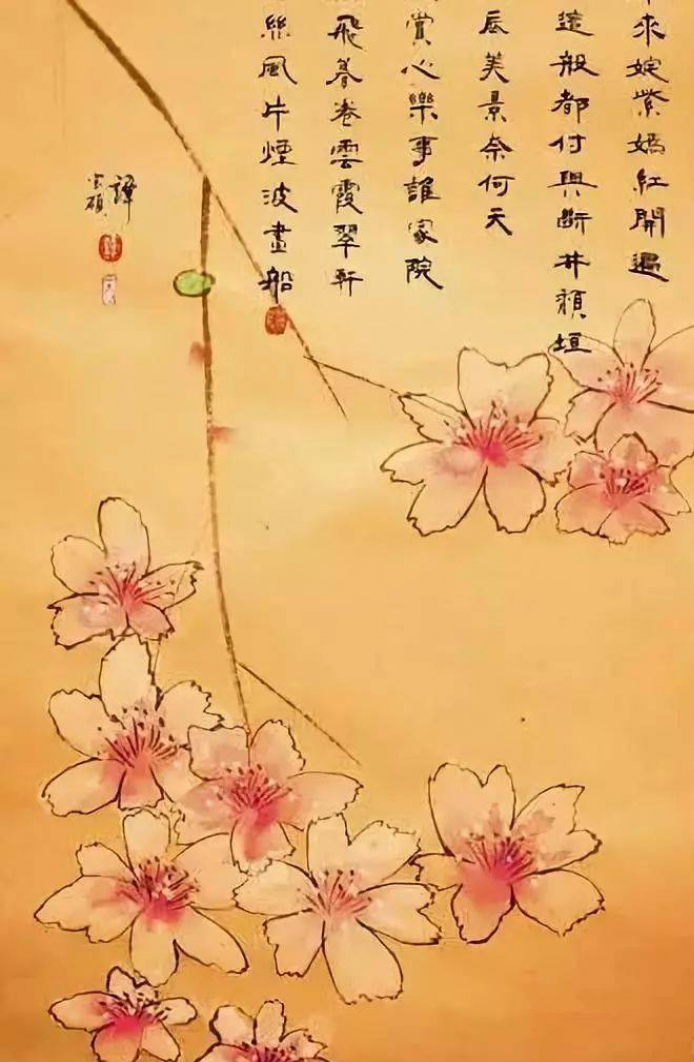 來姹紫嫣紅開遍
這般都付與斷井頹垣
辰美景奈何天
賞心樂事誰家院
飛暮卷雲霞翠軒
絲風片煙波畫船